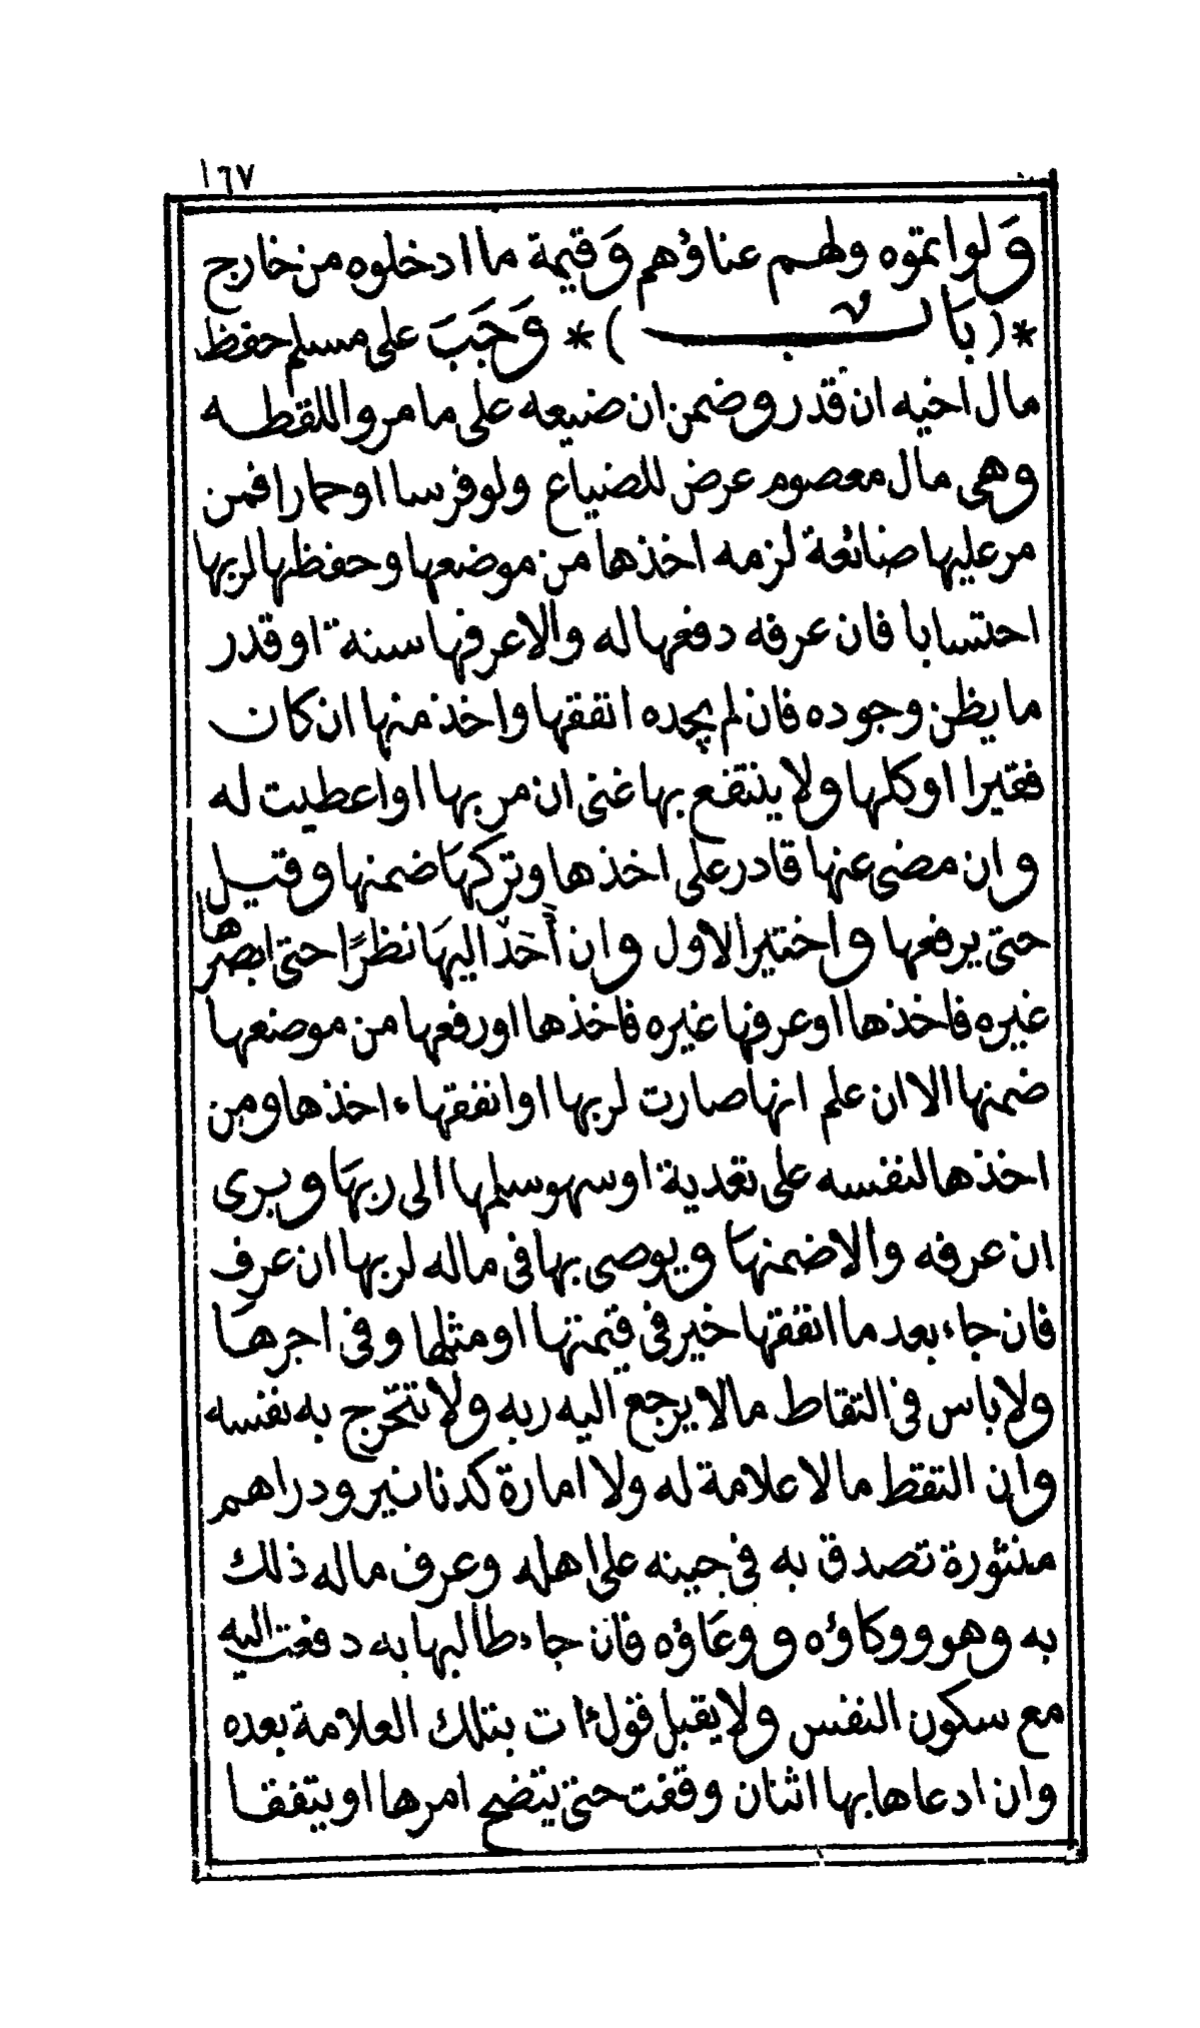 ١٦٧
ولو اتموه ولهم عناؤهم وقيمة ما ادخلوه من خارج
*( باب )* وَجَبَ على مسلم حفظ
مال اخيه ان قدر وضمن ان ضيعه على ما مر واللقطه
وهى مال معصوم عرض للضياع ولو فرسا او حمارا فمن
مر عليها ضائعة لزمه اخذها من موضعها وحفظها لربها
احتسابا فان عرفه دفعها له والا عرفها سنة او قدر
ما يظن وجوده فان لم يجده انفقها واخذ منها ان كان
فقيرا او كلها ولا ينتفع بها غنى ان مر بها او اعطيت له
وان مضى عنها قادر على اخذها وتركها ضمنها وقيل
حتى يرفعها واختير الاول وان أَحَدّ اليها نظرًا حتى ابصرها
غيره فاخذها او عرفها غيره فاخذها او رفعها من موضعها
ضمنها الا ان علم انها صارت لربها او انفقها ء اخذها ومن
اخذها لنفسه على تعدية او سهو سلمها الى ربها وبرى
ان عرفه والا ضمنها ويوصى بها فى ماله لربها ان عرف
فان جاء بعد ما انفقها خير فى قيمتها او مثلها وفى اجرها
ولا باس فى التقاط ما لا يرجع اليه ربه ولا تتحرج به نفسه
وان التقط ما لا علامة له ولا امارة كدنانير ودراهم
منثورة تصدق به فى حينه على اهله وعرف ماله ذلك
به وهو ووكاؤه ووعاؤه فان جاء طالبها به دفعت اليه
مع سكون النفس ولا يقبل قول ءات بتلك العلامة بعده
وان ادعاها بها اثنان وقفت حتى يتضح امرها او يتفقا